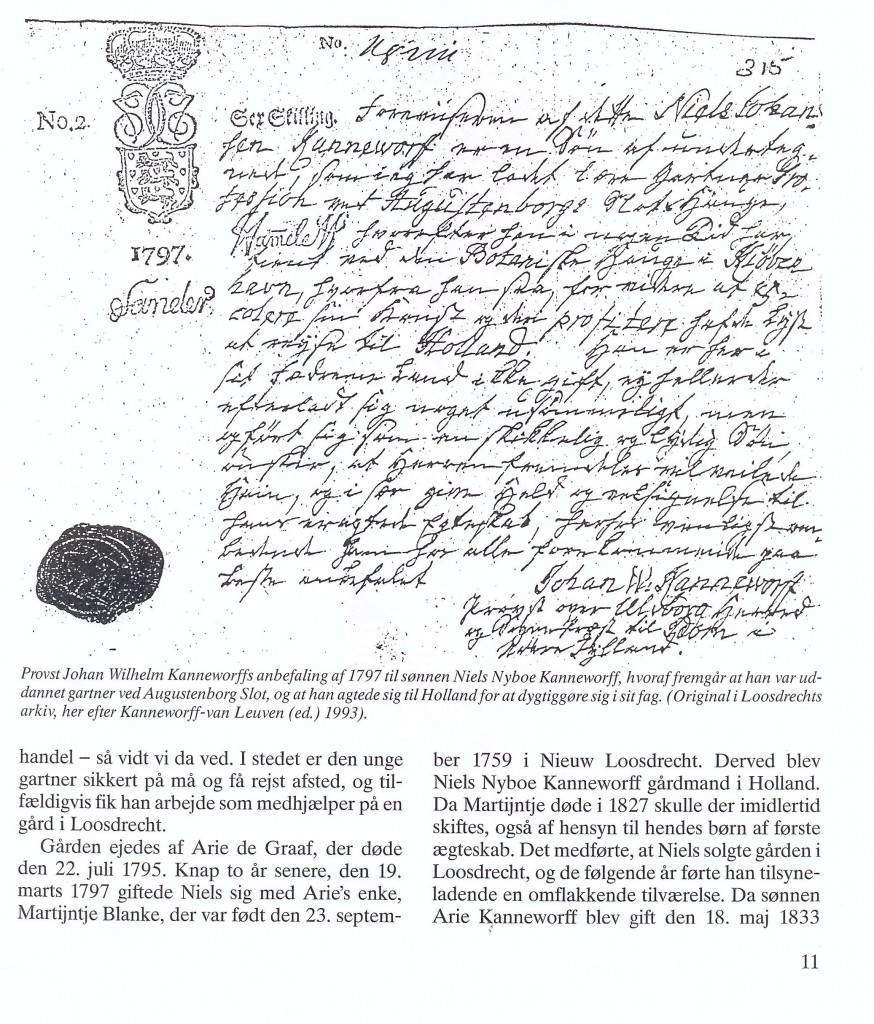 No.
315
No. 2.
Sex Skilling. Foreviseren af dette Niels Johan-
sen Kanneworf er en Søn af underteg-
net, som jeg har ladet lære Gartner Pro-
fession ved Augustenborgs Slots Hauge,
hvorefter han i nogen Tid har
tient ved den Botaniske Hauge i Kiøben-
1797.
havn, hvorfra han saa, for videre at ex-
colere sin Kunst og den profitere hafde Lyst
at reyse til Holland. Han er her i
sit Fædrene Land ikke gift, ey heller
efterladt sig noget usømmeligt, men
opført sig som en skikkelig og lydig Søn
ønsker, at Herren fremdeles vil veilede
Ham, og i sær give Held og velsignelse til
hans Egteskab,
ham for alle forekommende paa
beste anbefalet
Johan W. Kanneworff
Provst over Ulvborg Herred
og Sogneprest til Idom i
Nørre Jylland.
Provst Johan Wilhelm Kanneworffs anbefaling af 1797 til sønnen Niels Nyboe Kanneworff, hvoraf fremgår at han var ud-
dannet gartner ved Augustenborg Slot, og at han agtede sig til Holland for at dygtiggøre sig i sit fag. (Original i Loosdrechts
arkiv, her efter Kanneworff-van Leuven (ed.) 1993).
handel – så vidt vi da ved. I stedet er den unge
gartner sikkert på må og få rejst afsted, og til-
fældigvis fik han arbejde som medhjælper på en
gård i Loosdrecht.
Gården ejedes af Arie de Graaf, der døde
den 22. juli 1795. Knap to år senere, den 19.
marts 1797 giftede Niels sig med Arie's enke,
Martijntje Blanke, der var født den 23. septem-
ber 1759 i Nieuw Loosdrecht. Derved blev
Niels Nyboe Kanneworff gårdmand i Holland.
Da Martijntje døde i 1827 skulle der imidlertid
skiftes, også af hensyn til hendes børn af første
ægteskab. Det medførte, at Niels solgte gården i
Loosdrecht, og de følgende år førte han tilsyne-
ladende en omflakkende tilværelse. Da sønnen
Arie Kanneworff blev gift den 18. maj 1833
11